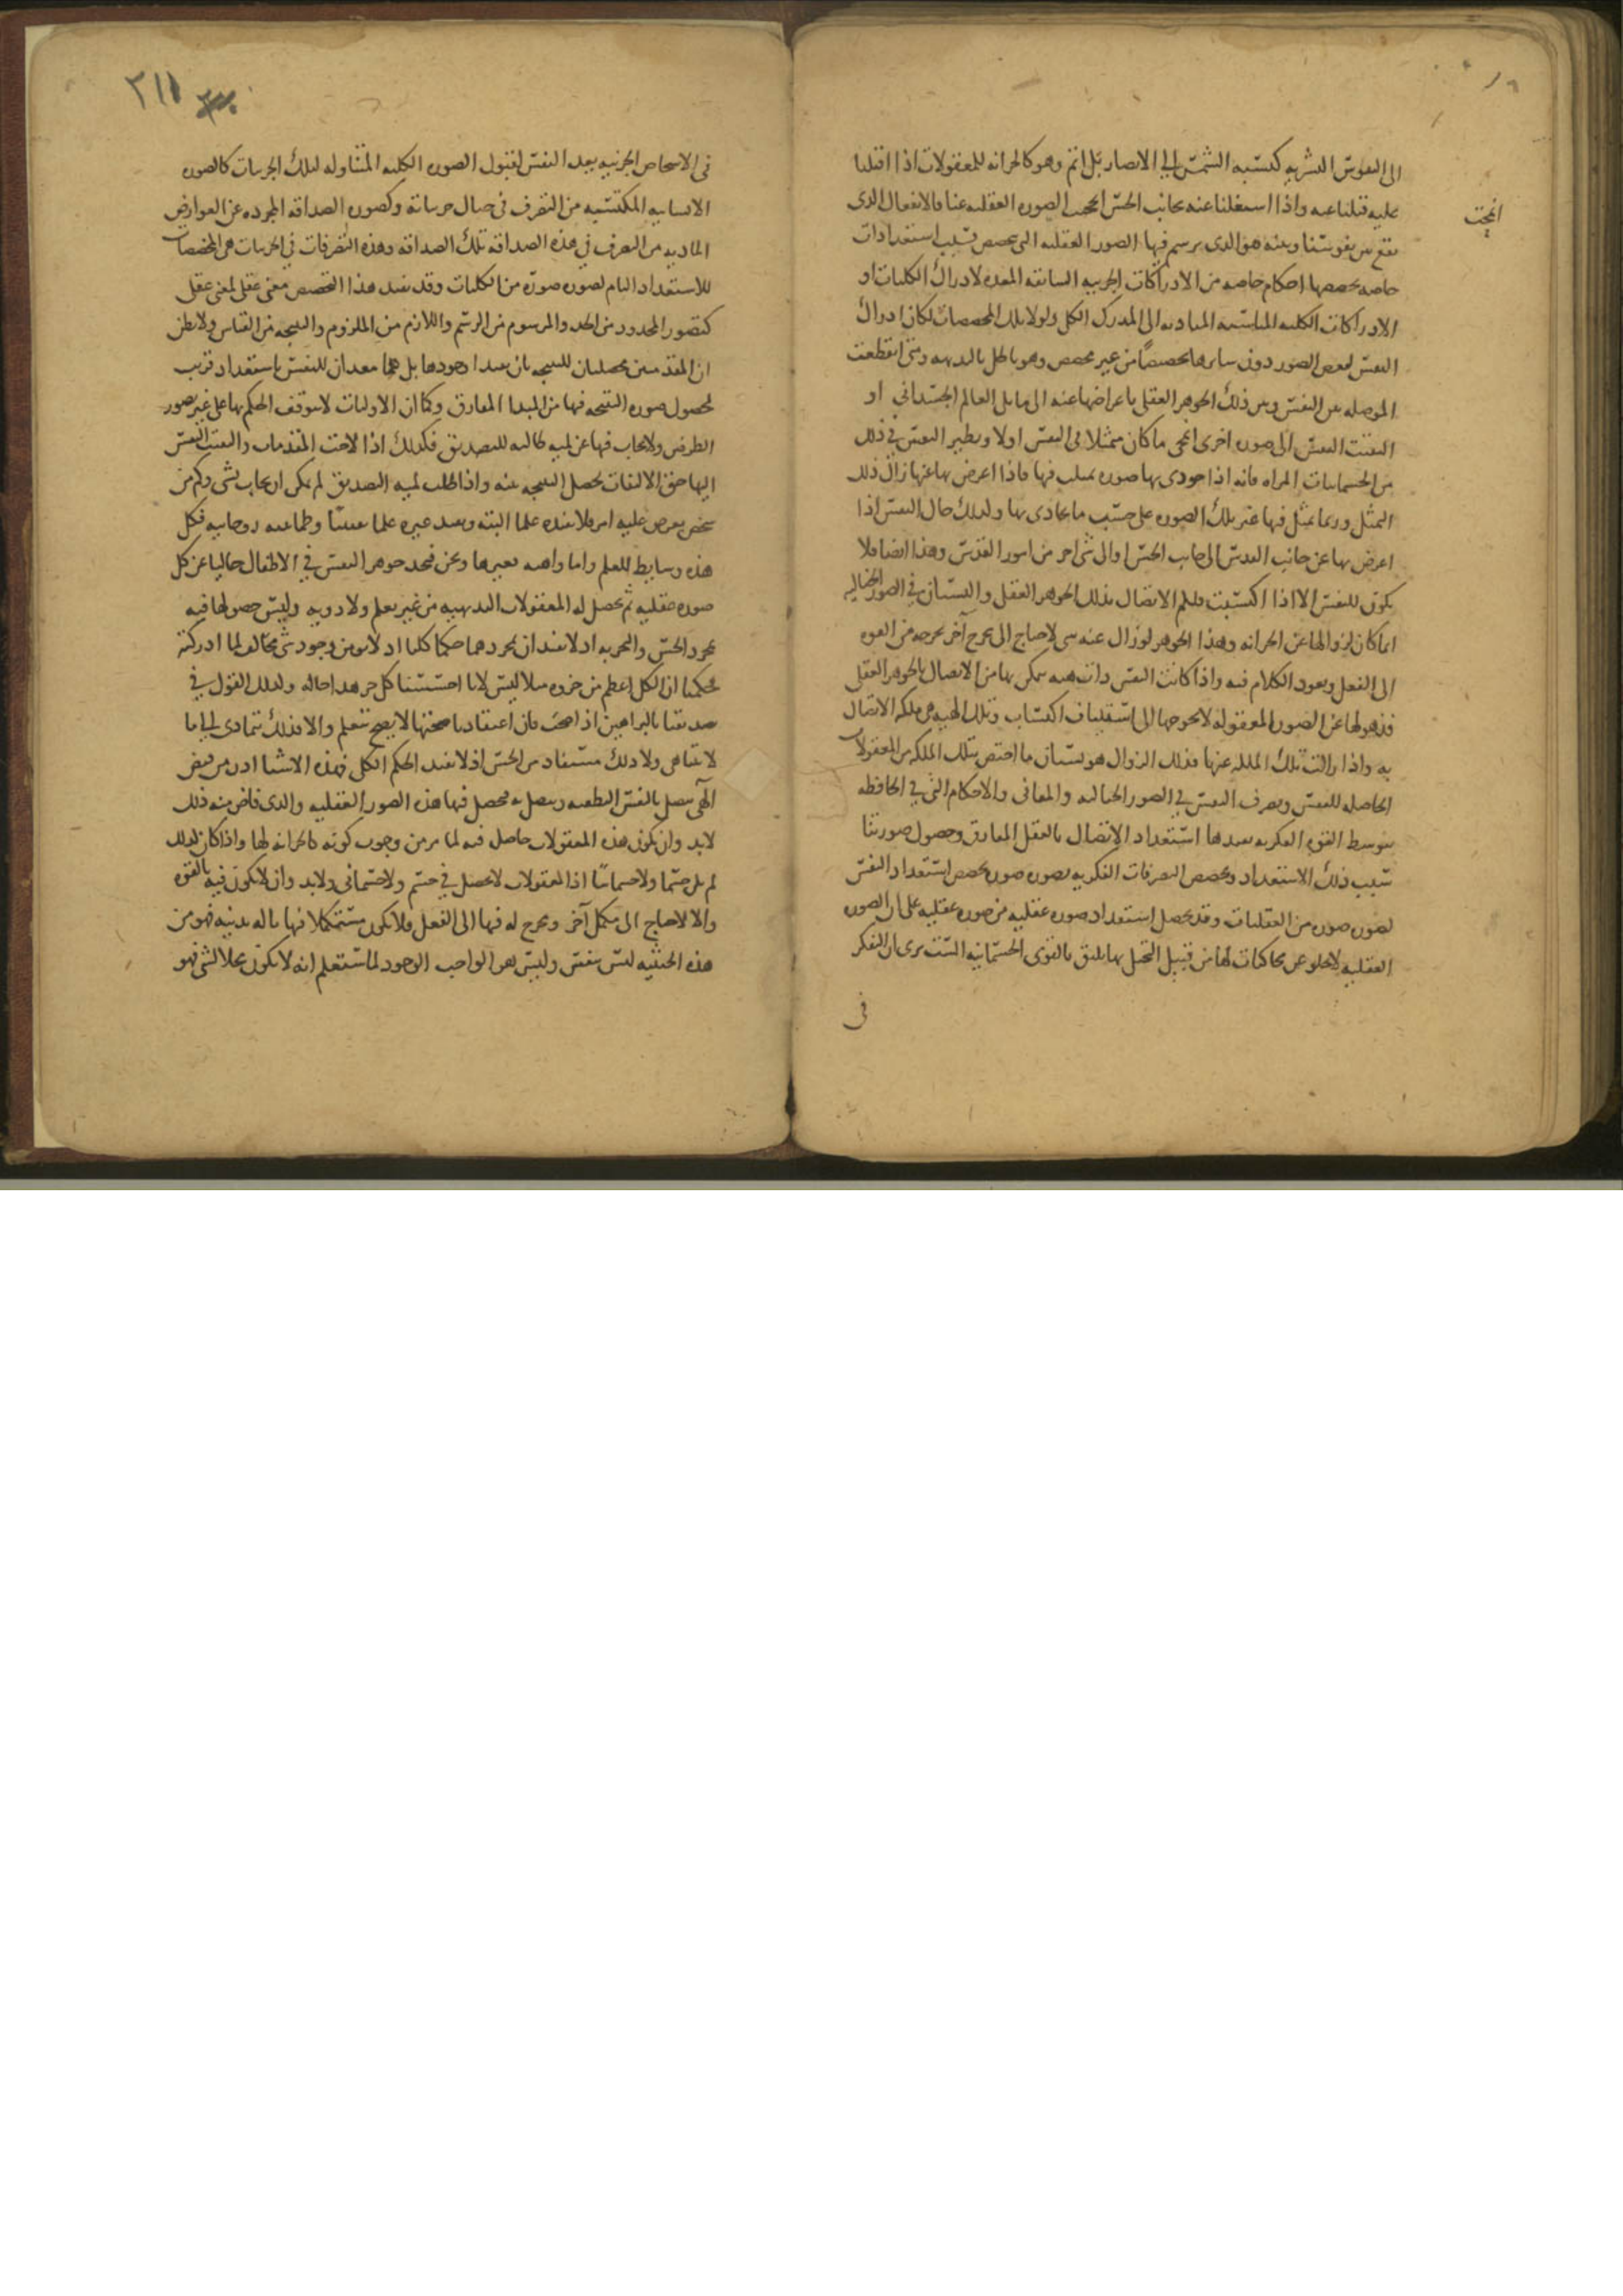 الى النفوس البشريه كنسبه الشمس الى الابصار بل اتم وهو كالخزانه للمعقولات اذا اقبلنا
عليه قبلنا عنه واذا اشتغلنا عنه بجانب الحس انمحت الصوره العقليه عنا فالانفعال الذى
انمحت
يقع بين نفوسنا وبينه هو الذى يرسم فيها الصور العقليه التى تخصص بسبب استعدادات
خاصه تخصصها احكام خاصه من الادراكات الجزييه السابقه المعده لادراك الكليات او
الادراكات الكليه المناسبه المتاديه الى المدرك الكلى ولولا تلك المخصصات لكان ادراك
النفس لبعض الصور دون سايرها تخصيصاً من غير مخصص وهو باطل بالبديهه ومتى انقطعت
الوصله بين النفس وبين ذلك الجوهر العقلى باعراضها عنه الى ما يلى العالم الجسدانى او
التفتت النفس الى صوره اخرى انمحى ما كان متمثلا فى النفس اولا ونظير النفس فى ذلك
من الجسمانيات المراه فانه اذا حوذى بها صوره تمثلت فيها فاذا اعرض بها عنها زال ذلك
التمثل وربما تمثل فيها غير تلك الصوره على حسب ما يحاذى بها وكذلك حال النفس اذا
اعرض بها عن جانب القدس الى جانب الحس او الى شى اخر من امور القدس وهذا ايضا فلا
يكون للنفس الا اذا اكتسبت ملكه الاتصال بذلك الجوهر العقلى والنسيان فى الصور الخياليه
انما كان لزوالها عن الخزانه وهذا الجوهر لو زال عنه شى لاحتاج الى مخرج آخر يخرجه من القوه
الى الفعل ويعود الكلام فيه واذا كانت النفس ذات هيه يتمكن بها من الاتصال بالجوهر العقلى
فذهولها عن الصوره المعقوله لا يحوجها الى استيناف اكتساب وتلك الهيه هى ملكه الاتصال
به واذا زالت تلك الملكه عنها فذلك الزوال هو نسيان ما اختص بتلك الملكه من المعقولات
الحاصله للنفس وتصرف النفس فى الصور الخياليه والمعانى والاحكام التى فى الحافظه
بتوسط القوه الفكريه يعدها استعداد الاتصال بالعقل المفارق وحصول صورتنا
بسبب ذلك الاستعداد وتخصص التصرفات الفكريه بصوره صوره تخصص استعداد النفس
لصوره صوره من العقليات وقد يحصل استعداد صوره عقليه من صوره عقليه على ان الصوره
العقليه لا تخلو عن محاكيات لها من قبيل التخيل بها يليق بالقوى الجسمانيه الست ترى ان التفكر
فى
٢١١
فى الاشخاص الجزييه يعد النفس لقبول الصوره الكليه المتناوله لتلك الجزييات كالصوره
الانسانيه المكتسبه من التصرف فى خيال جزيياته وكصوره الصداقه المجرده عن العوارض
الماديه من التصرف فى هذه الصداقه تلك الصداقه وهذه التصرفات فى الجزييات هى المخصصات
للاستعداد التام لصوره صوره من الكليات وقد يفيد هذا التخصص معنى عقلى لمعنى عقلى
كتصور المحدود من الحد والمرسوم من الرسم واللازم من الملزوم والنتيجه من القياس ولا يظن
ان المقدمتين محصلتان للنتيجه بان يفيدا وجودها بل هما معدان للنفس باستعداد قريب
لحصول صوره النتيجه فيها من المبدا المفارق وكما ان الاوليات لا يتوقف الحكم بها على غير تصور
الطرفين ولا يجاب فيها عن لميه طالبه للتصديق فكذلك اذا لاحت المقدمات والتفتت النفس
اليها حق الالتفات يحصل النتيجه عنه واذا طلب لميه التصديق لم يمكن ان يجاب بشى وكم من
شخص يعرض عليه امر فلا يفيده علما البته ويفيد غيره علما يقينيا وطمانينه روحانيه فكل
هذه وسايط للعلم واما واهبه فغيرها ونحن فنجد جوهر النفس فى الاطفال خاليا عن كل
صوره عقليه ثم يحصل له المعقولات البديهيه من غير تعلم ولا رويه وليس حصولها فيه
بمجرد الحس والتجربه اذ لا يفيدان بمجردهما حكما كليا اذ لا يومن وجود شى مخالف لما ادركته
فحكمنا ان الكل اعظم من جزوه مثلا ليس لانا احسسنا كل جز هذا حاله وكذلك القول فى
تصديقنا بالبراهين اذا صحت فان اعتقادنا صحتها لا يصح بتعلم والا فذلك يتمادى الى ما
لا يتناهى ولا ذلك مستفاد من الحس اذ لا يفيد الحكم الكلى فهذه الاشيا اذن من فيض
آلهى يتصل بالنفس النطقيه وتتصل به فيحصل فيها هذه الصور العقليه والذى فاض منه ذلك
لابد وان يكون هذه المعقولات حاصله فيه لما مر من وجوب كونه كالخزانه لها واذا كان كذلك
لم يكن جسما ولا جسمانيا اذا المعقولات لا تحصل فى جسم ولا جسمانى ولابد وان لا يكون فيه بالقوه
والا لاحتاج الى مكمل آخر ومخرج له فيها الى الفعل فلا يكون مستكملا فيها باله بدنيه فهو من
هذه الحيثيه ليس بنفس وليس هو الواجب الوجود لما ستعلم انه لا يكون محلا لشى فهو